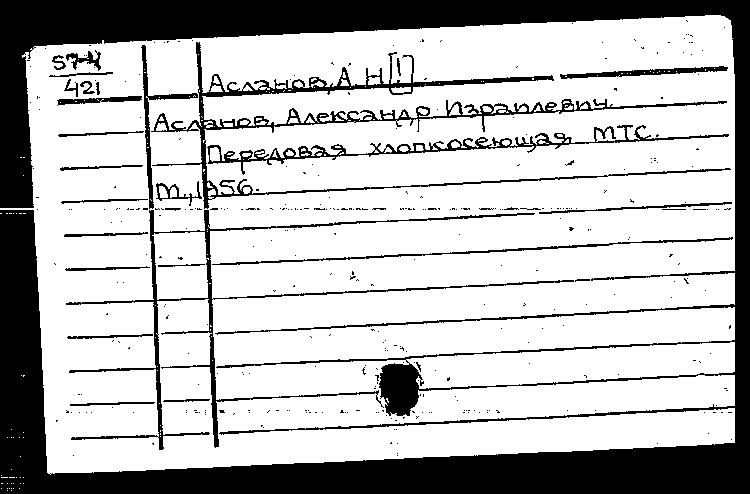 57-4
421
Асланов, А Н [!]
Асланов, Александр Израилевич.
Передовая хлопкосеющая МТС.
М., 1956.